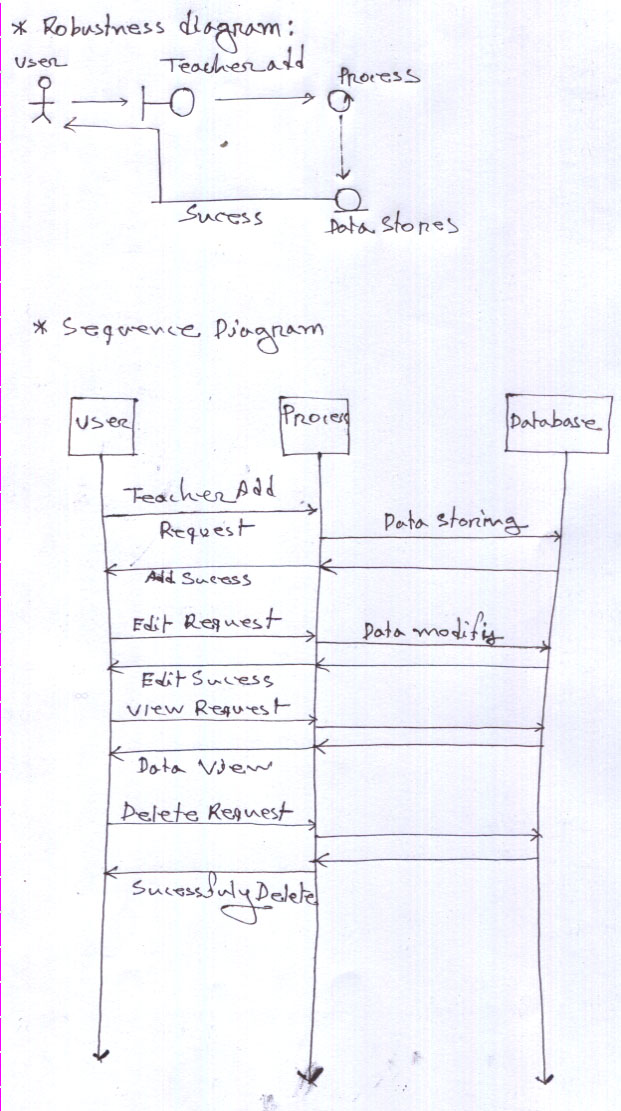 * Robustness diagram:
User
Teacher add
Process
Sucess
Data Stores
* Sequence Diagram
User
Process
Database
Teacher Add
Request
Data Storing
Add Sucess
Edit Request
Data modifis
Edit Sucess
View Request
Data View
Delete Request
Sucessfuly Delete